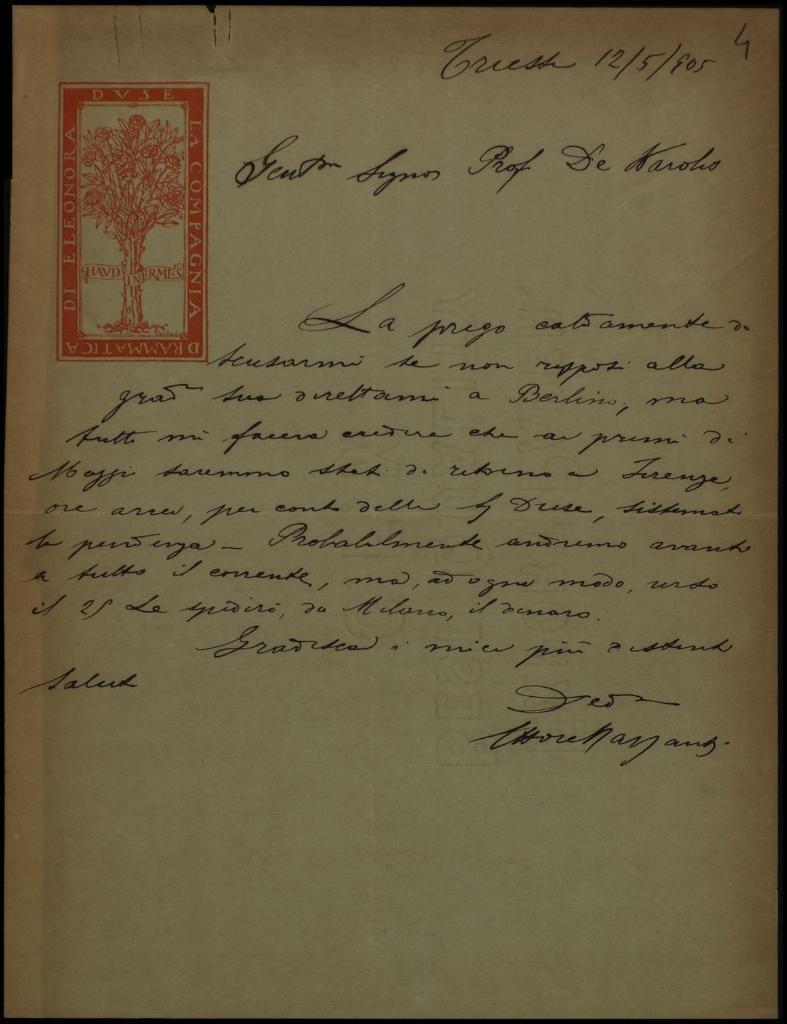 4
Trieste 12/5/905
DI ELEONORA DVSE LA COMPAGNIA DRAMMATICA
HAVD INERMES
Gentmo Signor Prof De Karolis
La prego caldamente di
scusarmi se non risposi alla
gradma sua direttami a Berlino, ma
tutto mi faceva credere che ai primi di
Maggio saremmo stati di ritorno a Firenze,
ove avrei, per conto della Sig Duse, sistemato
la pendenza — Probabilmente andremo avanti
a tutto il corrente, ma, ad ogni modo, verso
il 25 Le spedirò, da Milano, il denaro.
Gradisca i miei più distinti
saluti
Devmo
Ettore Mazzanti